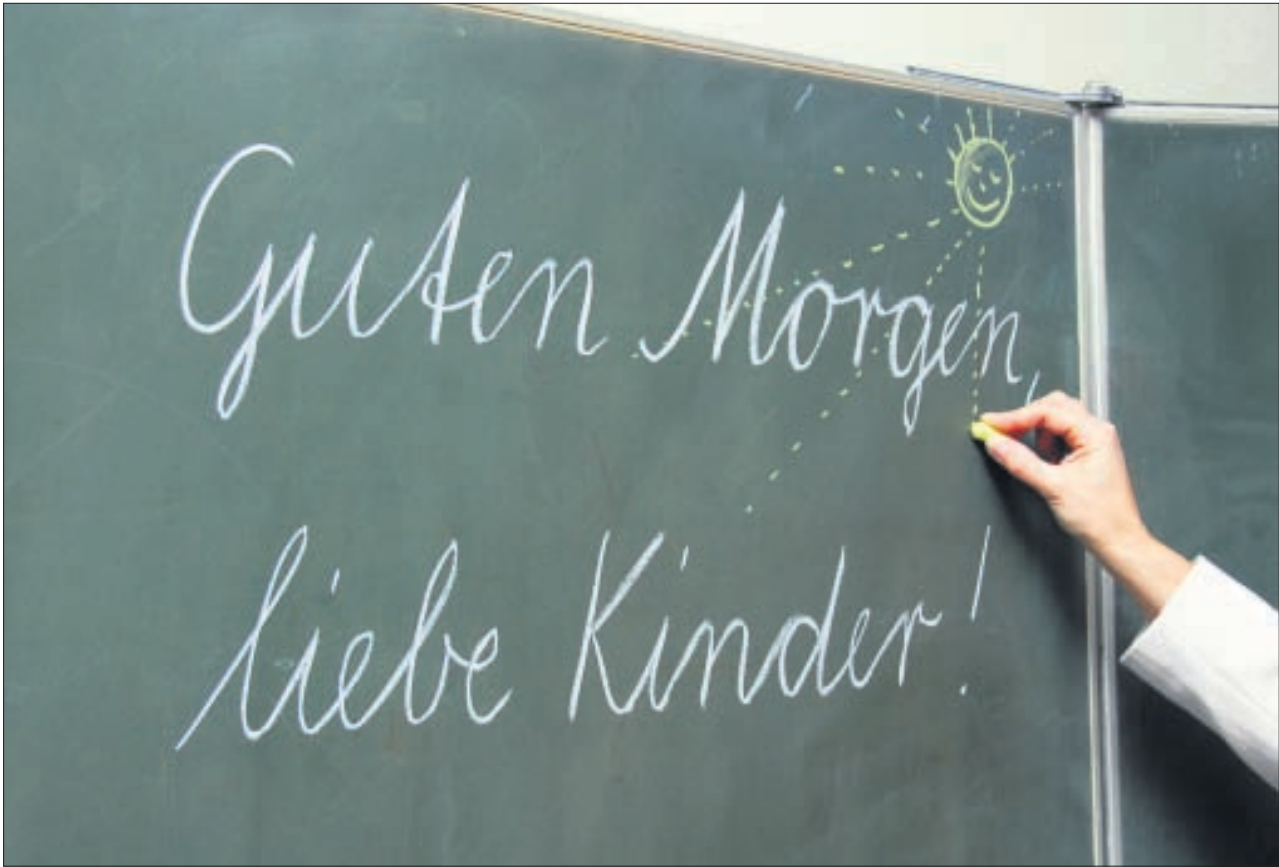 Guten Morgen,
liebe Kinder!